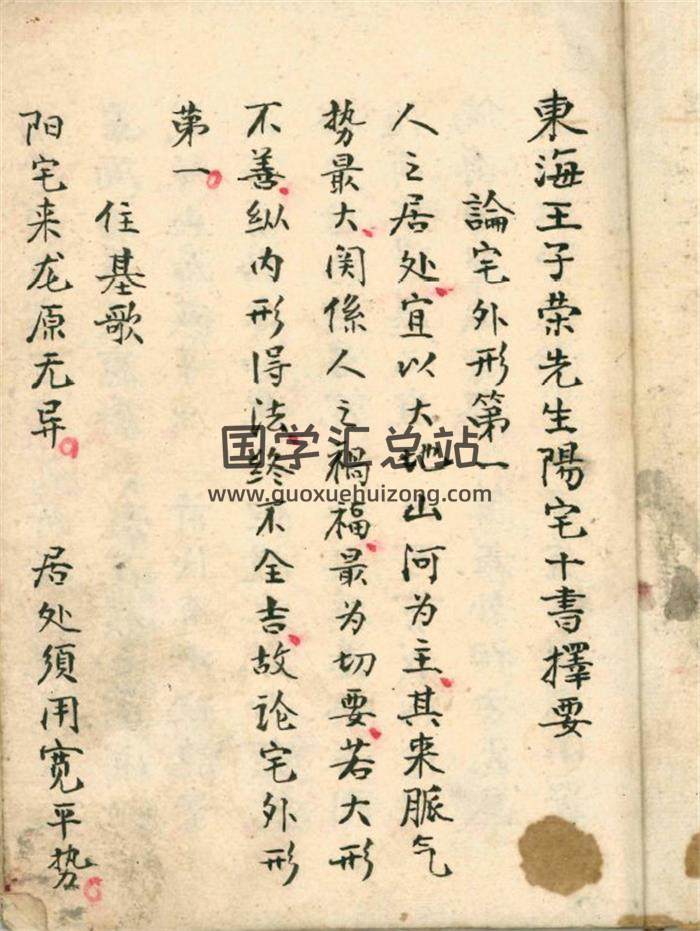 東海王子荣先生陽宅十書擇要
論宅外形第一
人之居处宜以大地山河为主其来脈气
势最大関係人之禍福最为切要若大形
不善纵内形得法终不全吉故论宅外形
第一
住基歌
阳宅来龙原无异 居处须用宽平势
国学汇总站
www.guoxuehuizong.com